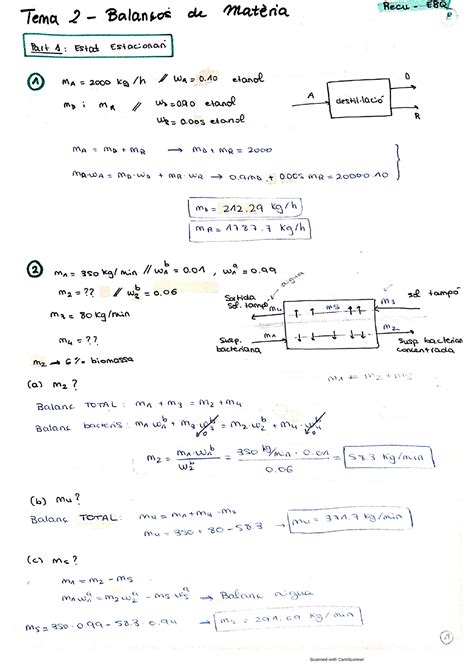 Recu - EBQ
Tema 2 - Balanços de Matèria
Part 1: Estat Estacionari
① mA = 2000 kg/h // wA = 0.10 etanol
mD i mR // wD = 0.90 etanol
wR = 0.005 etanol
A
destil·lació
D
R
mA = mD + mR → mD + mR = 2000
mA·wA = mD·wD + mR·wR → 0.9mD + 0.005 mR = 2000·0.10
mD = 212.29 kg/h
mR = 1787.7 kg/h
② m1 = 350 kg/min // w1ᵇ = 0.01, w1ᵃ = 0.99
m2 = ?? // w2ᵇ = 0.06
m3 = 80 kg/min
m4 = ??
m2 → 6% biomassa
aigua
Sortida
sol. tampó
m4
m5
m3
sol tampó
Susp.
bacteriana
m1
m2
Susp bacteriana
concentrada
m1 = m2 + m5
(a) m2?
Balanç TOTAL: m1 + m3 = m2 + m4
Balanç bacteris: m1 w1ᵇ + m3 w3ᵇ = m2·w2ᵇ + m4·w4ᵇ
m2 = m1·w1ᵇ / w2ᵇ = 350 kg/min · 0.01 / 0.06 = 58.3 kg/min
(b) m4?
Balanç TOTAL: m4 = m1 + m3 - m2
m4 = 350 + 80 - 58.3 → m4 = 371.7 kg/min
(c) m5?
m1 = m2 - m5
m1w1ᵃ = m2w2ᵃ - m5 w5ᵃ → Balanç aigua
m5 = 350·0.99 - 58.3·0.94 → m5 = 291.69 kg/min
1
Scanned with CamScanner